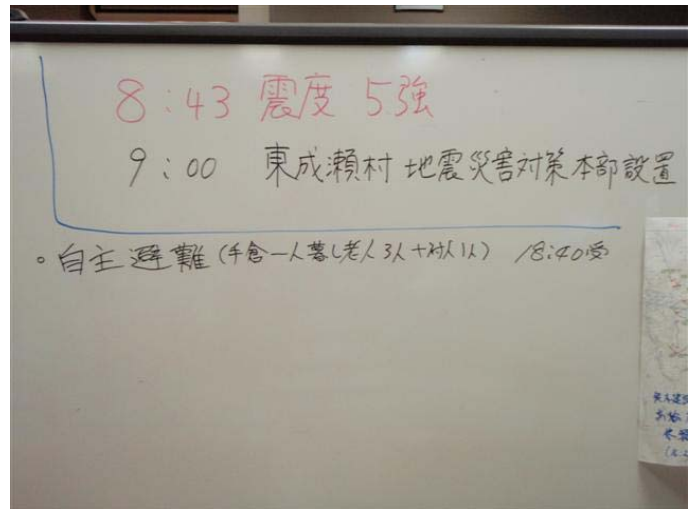 8:43 震度 5強
9:00 東成瀬村 地震災害対策本部設置
。自主避難(手倉一人暮し老人3人+村人1人) 18:40受